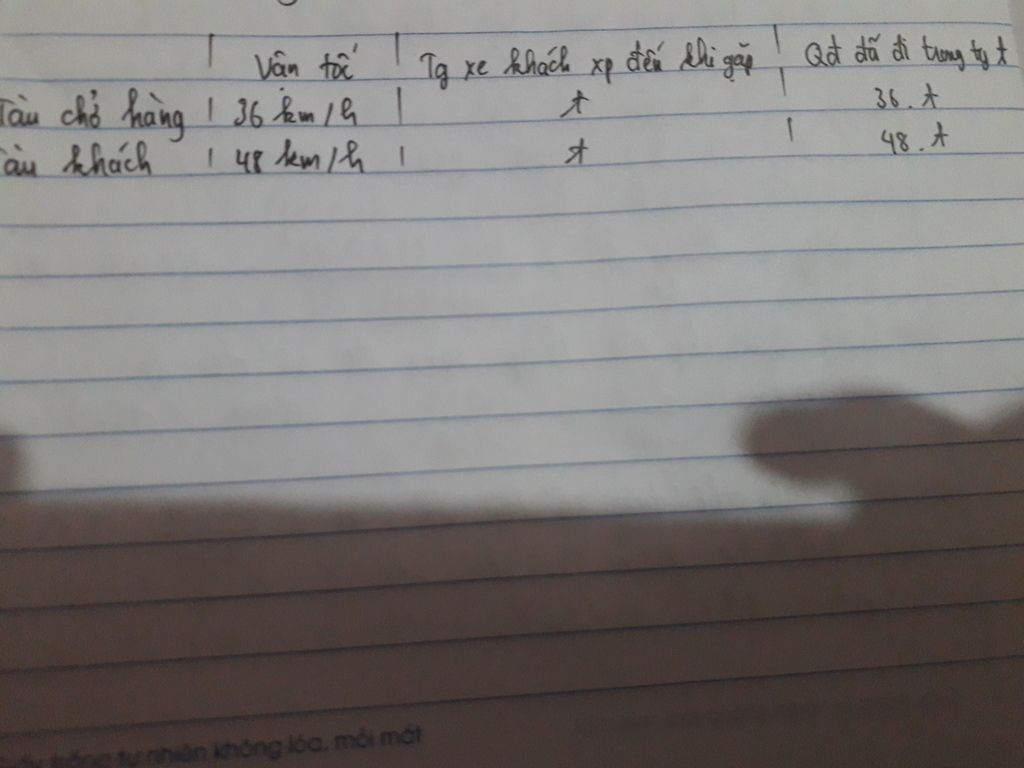 Vận tốc | Tg xe khách xp đến khi gặp | Qđ đã đi trong tg t
Tàu chở hàng | 36 km/h | t | 36.t
Tàu khách | 48 km/h | t | 48.t
Giấy trắng tự nhiên không lóa, mỏi mắt